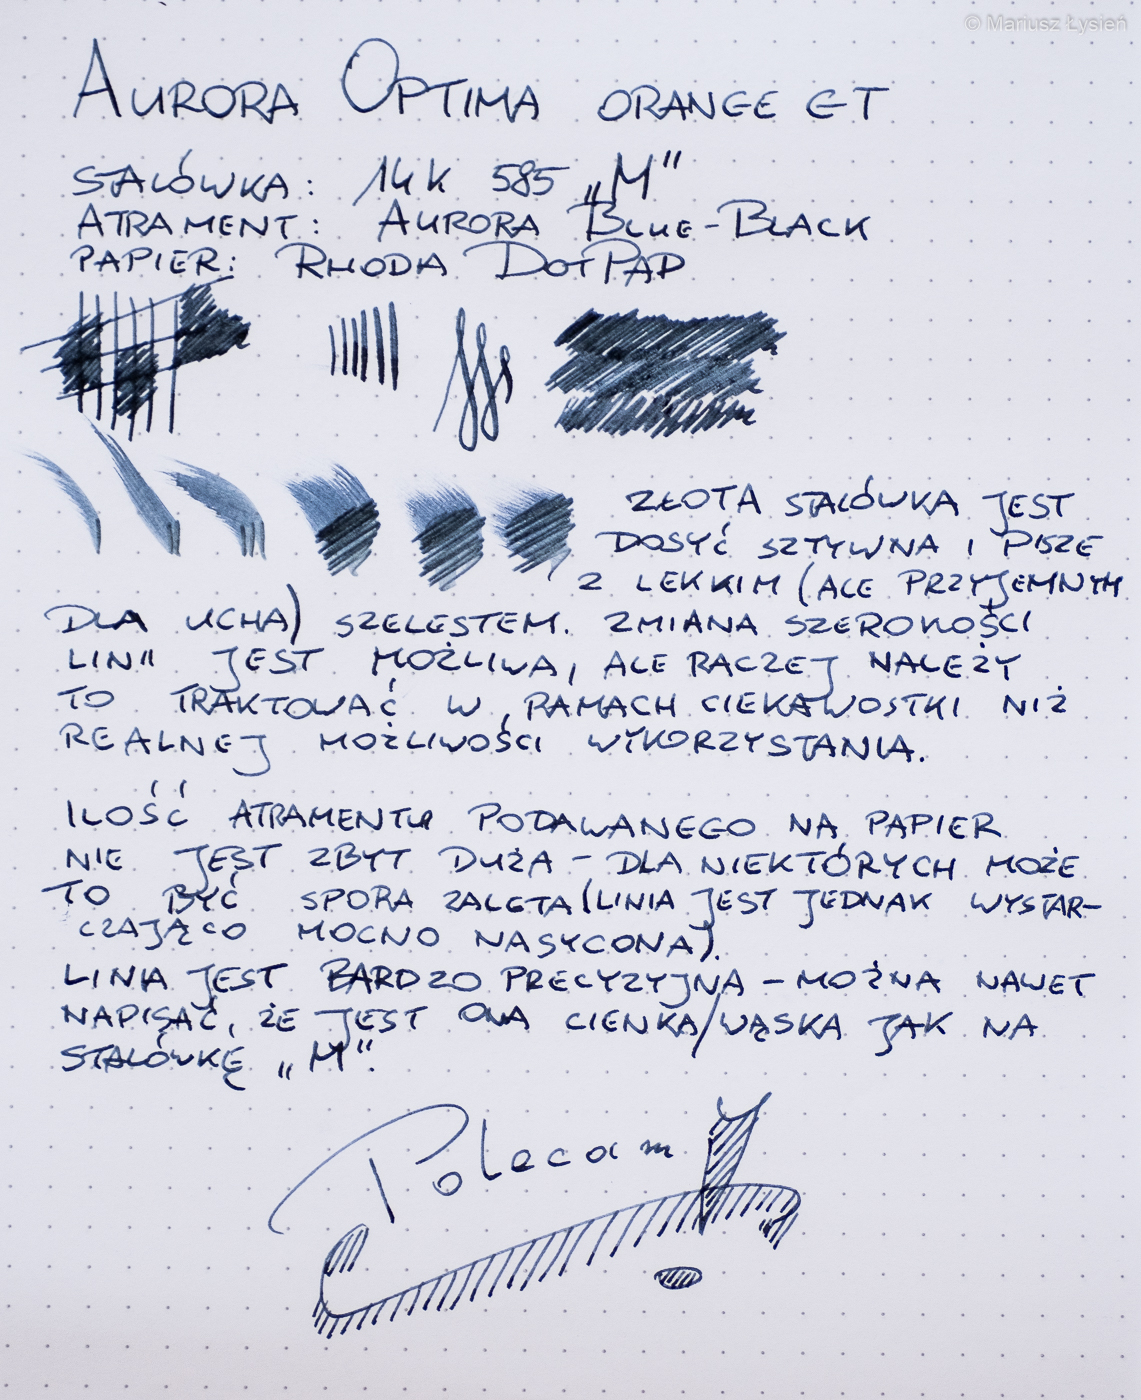 © Mariusz Łysień
AURORA OPTIMA ORANGE GT
STALÓWKA: 14K 585 „M”
ATRAMENT: AURORA BLUE-BLACK
PAPIER: RHODIA DOTPAD
ZŁOTA STALÓWKA JEST
DOSYĆ SZTYWNA I PISZE
Z LEKKIM (ALE PRZYJEMNYM
DLA UCHA) SZELESTEM. ZMIANA SZEROKOŚCI
LINII JEST MOŻLIWA, ALE RACZEJ NALEŻY
TO TRAKTOWAĆ W RAMACH CIEKAWOSTKI NIŻ
REALNEJ MOŻLIWOŚCI WYKORZYSTANIA.
ILOŚĆ ATRAMENTU PODAWANEGO NA PAPIER
NIE JEST ZBYT DUŻA - DLA NIEKTÓRYCH MOŻE
TO BYĆ SPORA ZALETA (LINIA JEST JEDNAK WYSTAR-
CZAJĄCO MOCNO NASYCONA).
LINIA JEST BARDZO PRECYZYJNA - MOŻNA NAWET
NAPISAĆ, ŻE JEST ONA CIENKA/WĄSKA JAK NA
STALÓWKĘ „M”.
Polecam!